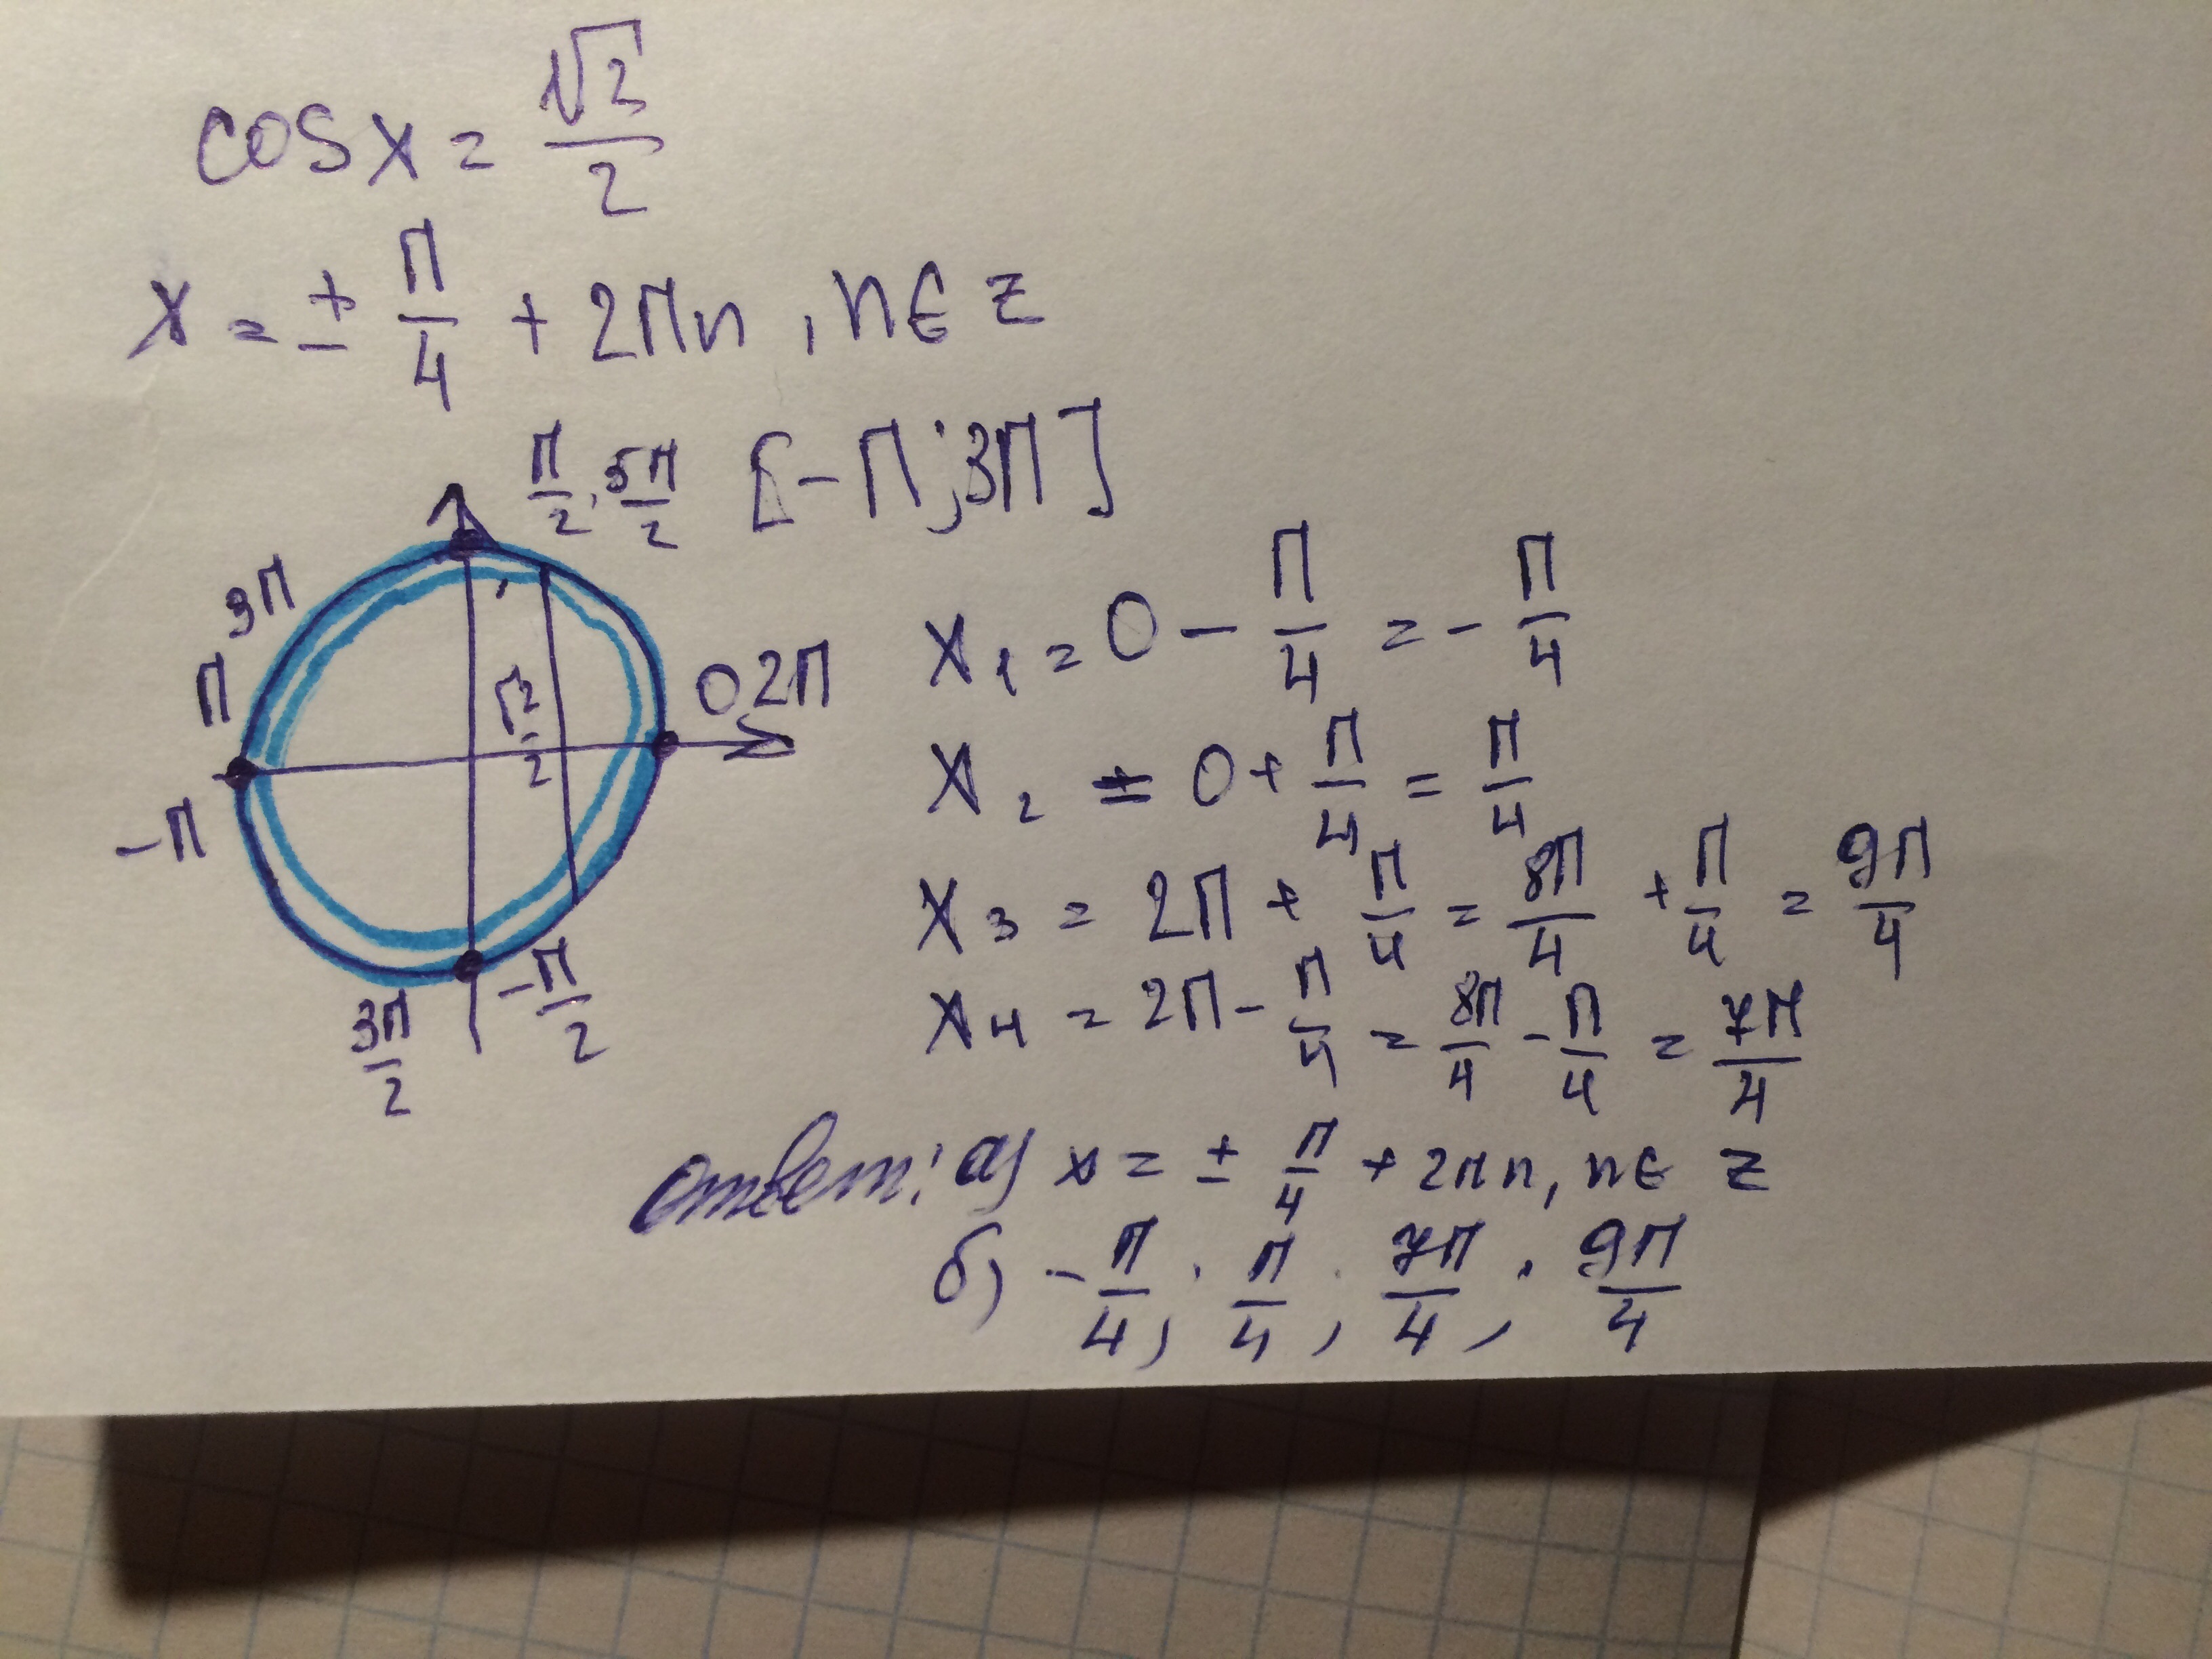 cos x = √2/2
x = ± π/4 + 2πn, n ∈ z
π/2, 5π/2 [-π; 3π]
3π
π
-π
0 2π
√2/2
3π/2
-π/2
x₁ = 0 - π/4 = - π/4
x₂ = 0 + π/4 = π/4
x₃ = 2π + π/4 = 8π/4 + π/4 = 9π/4
x₄ = 2π - π/4 = 8π/4 - π/4 = 7π/4
ответ: а) x = ± π/4 + 2πn, n ∈ z
б) -π/4; π/4; 7π/4; 9π/4